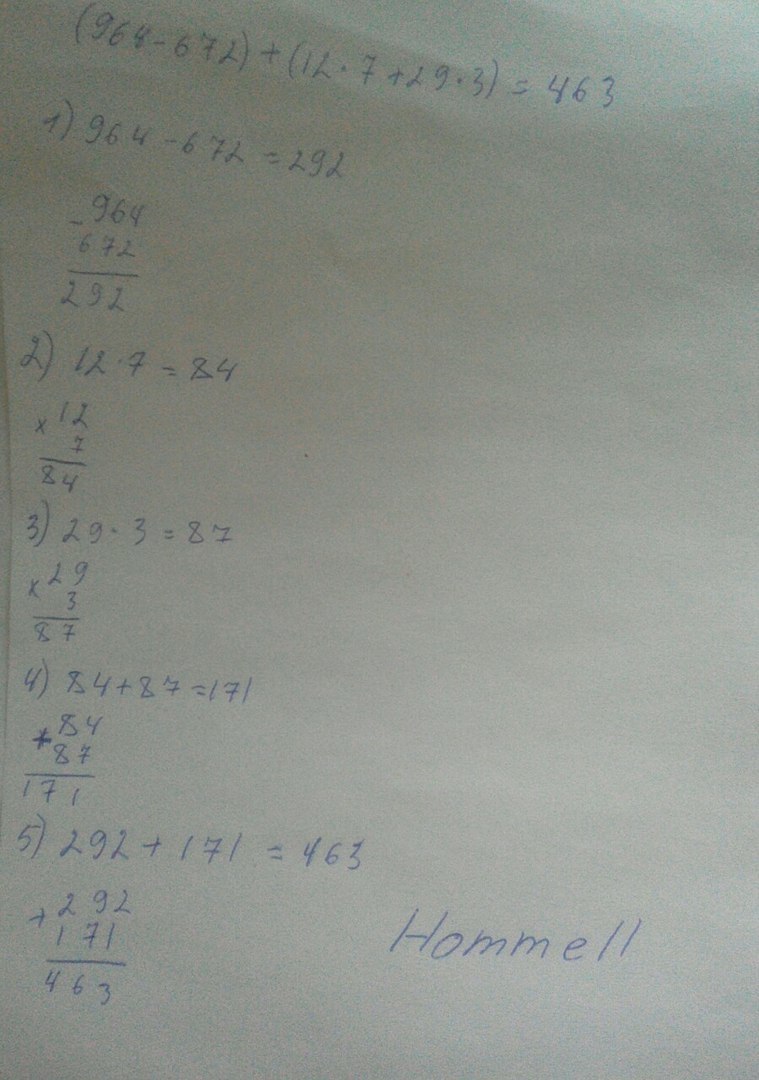 (964-672)+(12·7+29·3)=463
1) 964-672=292
-964
672
292
2) 12·7=84
×12
7
84
3) 29·3=87
×29
3
87
4) 84+87=171
+84
87
171
5) 292+171=463
+292
171
463
Hommell